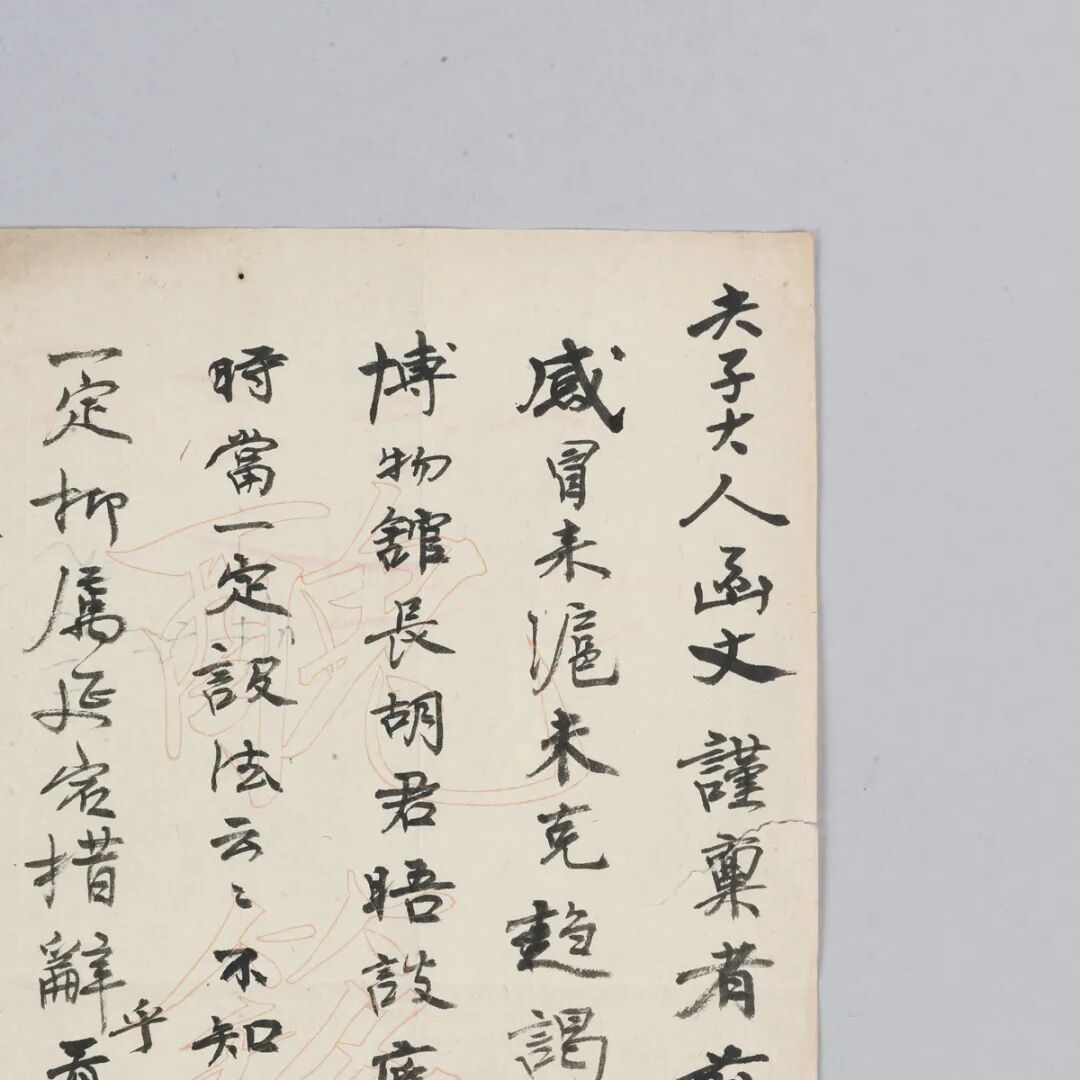 夫子大人函丈謹稟者前
感冒未滬未克趨謁
博物舘長胡君晤談
時當一定設法云〻不知
一定抑属延宕措辭乎